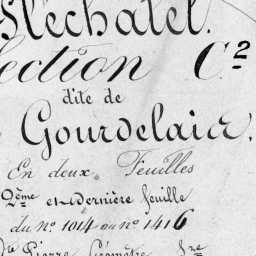 Fléchatel.
Section C²
dite de
Gourdelair.
En deux Feuilles
2ème et dernière feuille
du n° 1014 au n° 1416
Pierre Géomètre